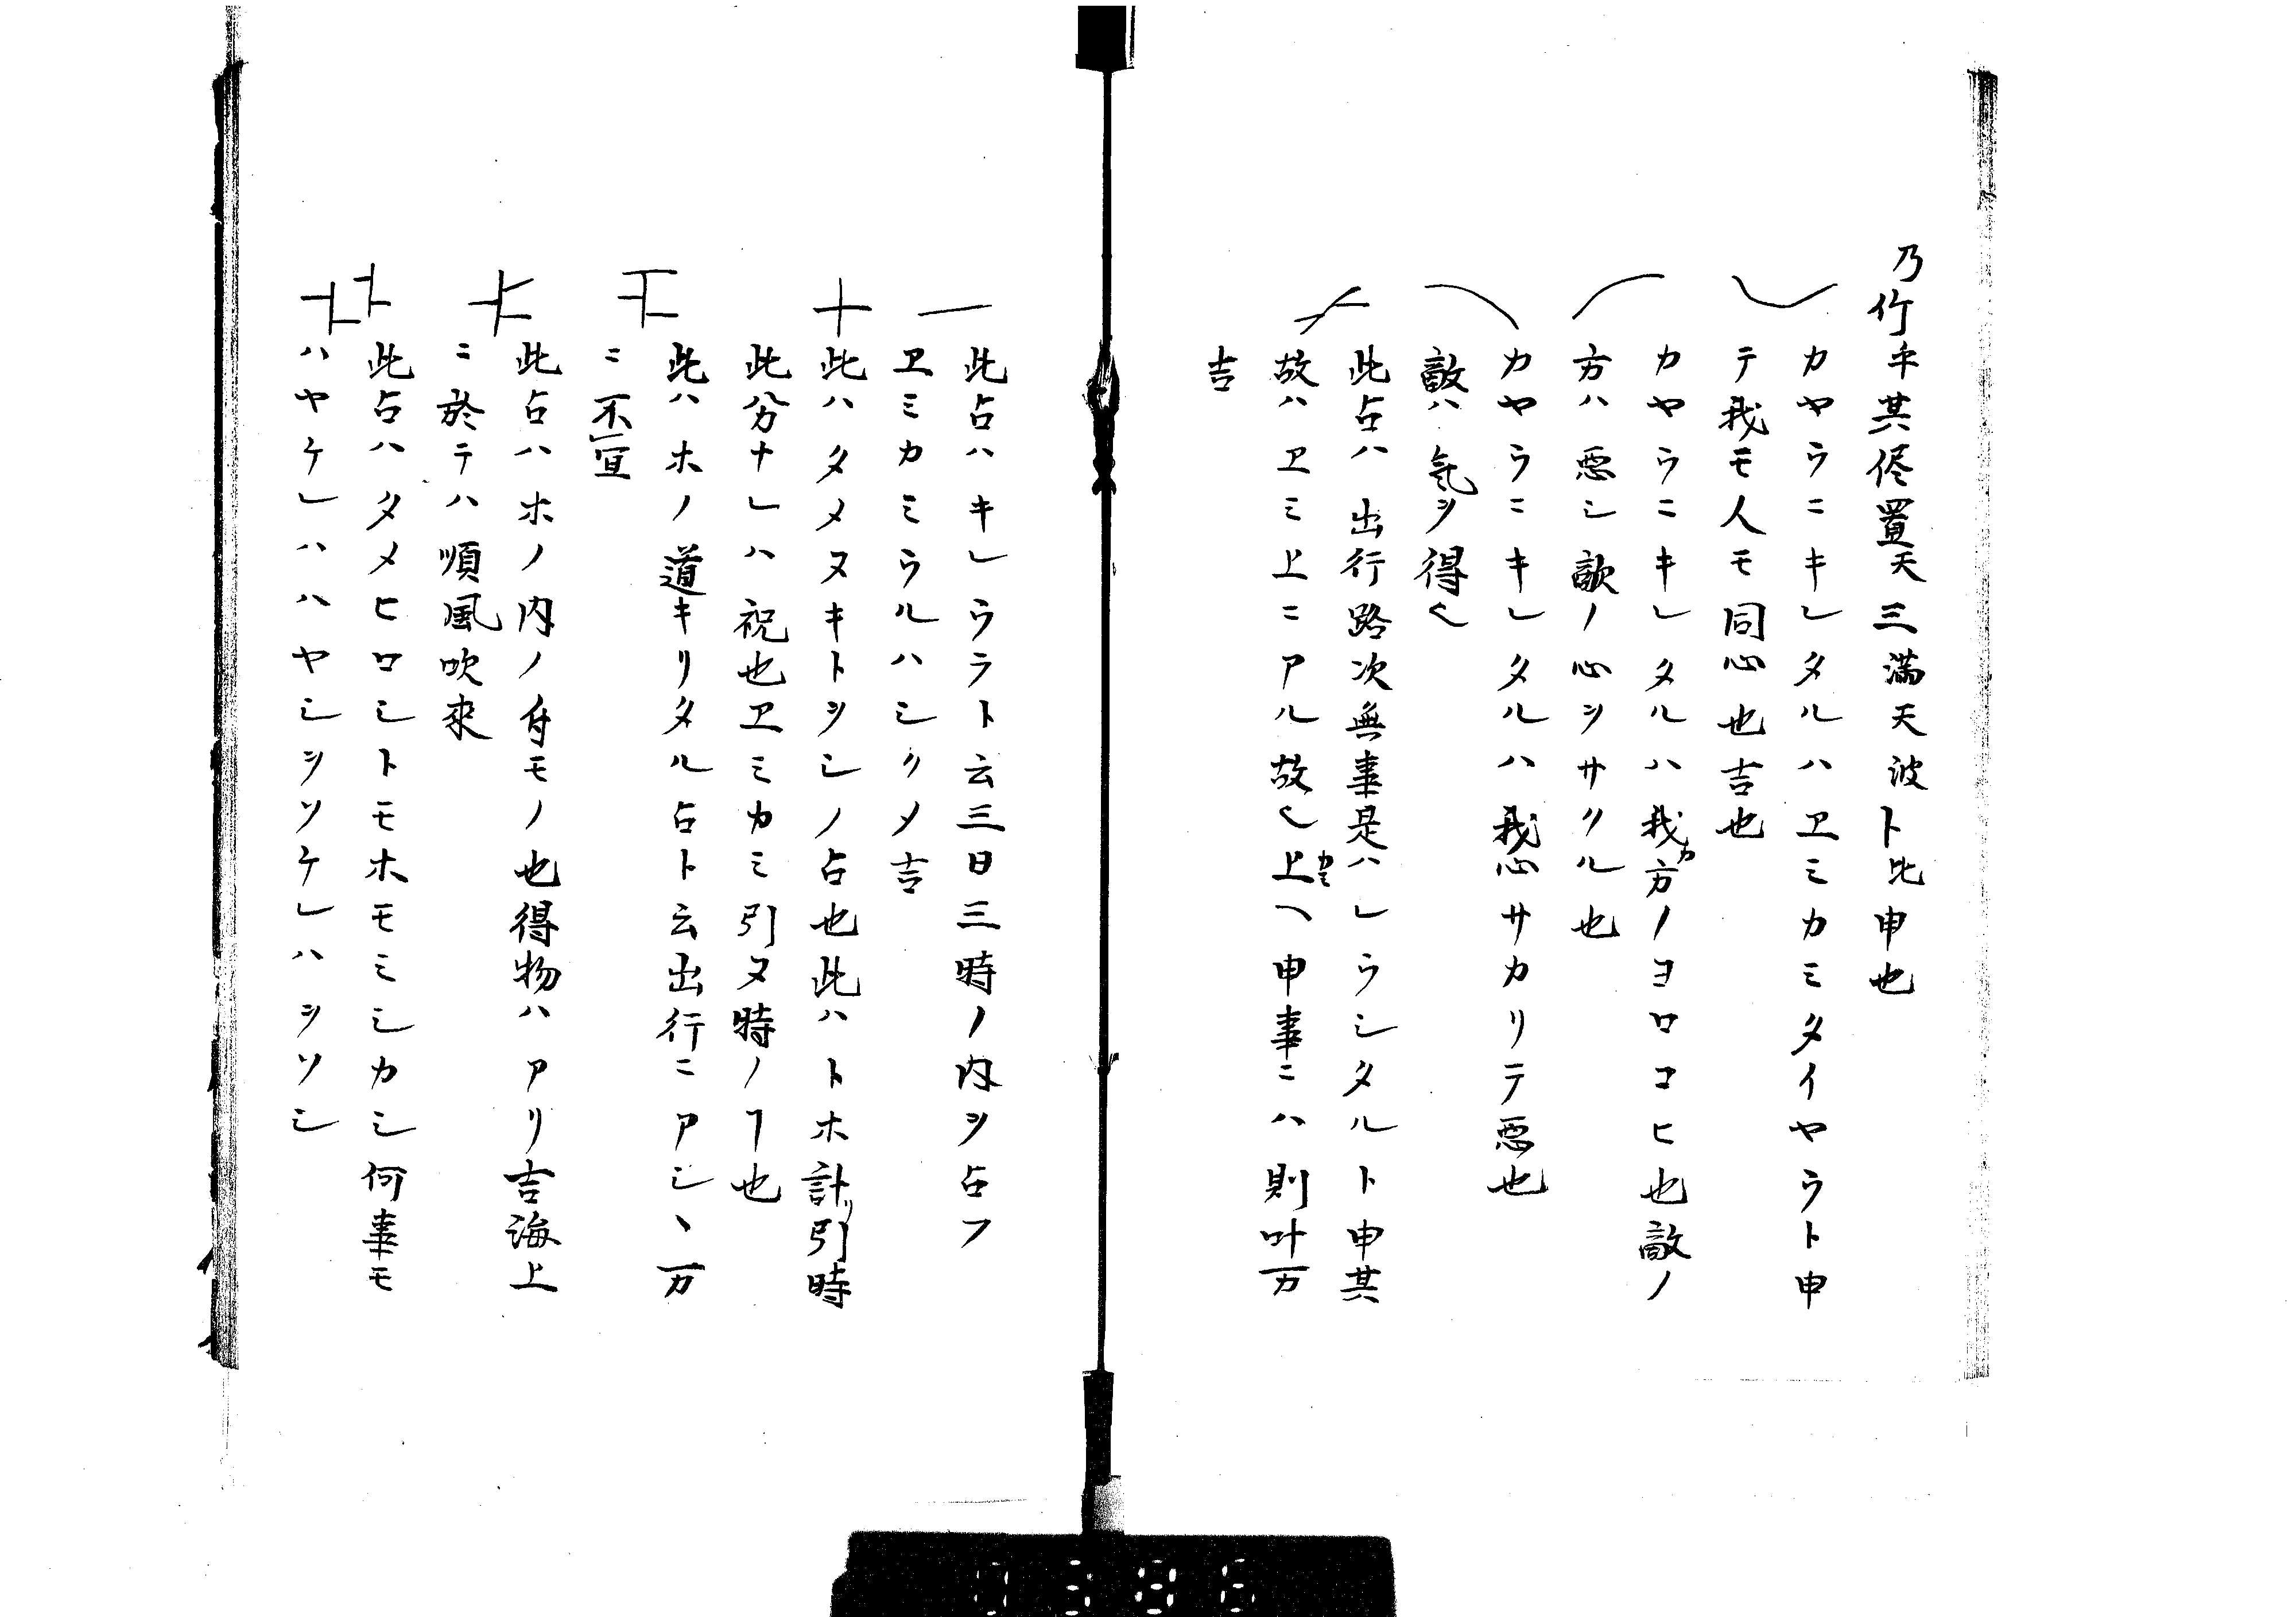 乃竹乎其侭置天三満天波ト比申也
カヤウニキレタルハヱミカミタイヤウト申
テ我モ人モ同心也吉也
カヤウニキレタルハ我カ方ノヨロコヒ也敵ノ
方ハ悪シ敵ノ心ヲサクル也
カヤウニキレタルハ我心サカリテ悪也
敵ハ氣ヲ得〱
此占ハ出行路次無事是ハレウシタルト申其
故ハヱミ上ニアル故〱上カミヘ申事ニハ則叶万
吉
此占ハキレウラト云三日三時ノ内ヲ占フ
ヱミカミウルハシクメ吉
此ハタメヌキトヲシノ占也此ハトホ計リ引時
此分ナレハ祝也ヱミカミ引ヌ時ノヿ也
此ハホノ道キリタル占ト云出行ニアシヽ万
ニ不宜
此占ハホノ内ノ付モノ也得物ハアリ吉海上
ニ於テハ順風吹來
此占ハタメヒロシトモホモミシカシ何事モ
ハヤケレハハヤシヲソケレハヲソシ